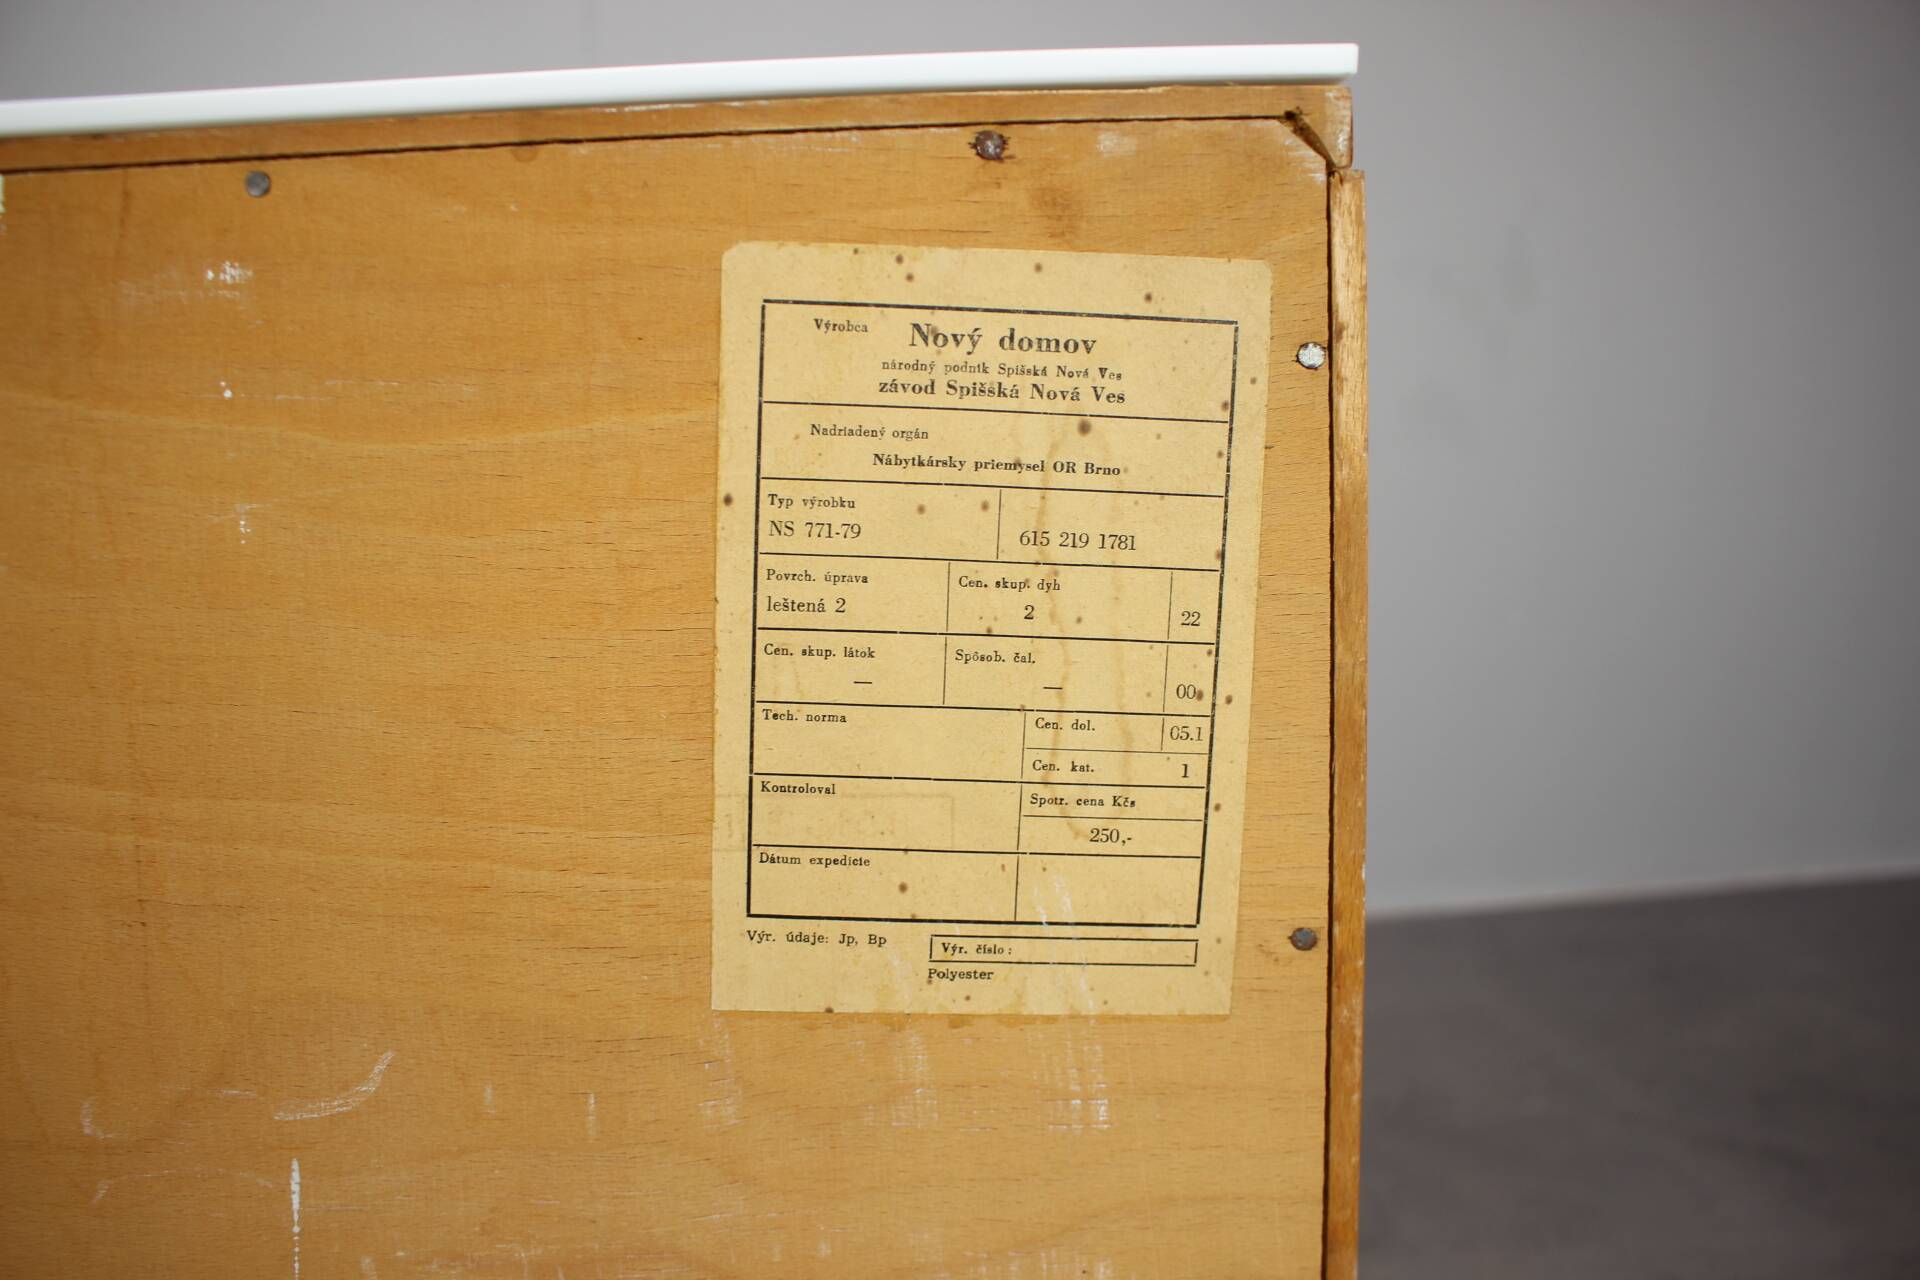 Výrobca
Nový domov
národný podnik Spišská Nová Ves
závod Spišská Nová Ves
Nadriadený orgán
Nábytkársky priemysel OR Brno
Typ výrobku
NS 771-79
615 219 1781
Povrch. úprava
leštená 2
Cen. skup. dyh
2
22
Cen. skup. látok
—
Spôsob. čal.
—
00
Tech. norma
Cen. dol.
05.1
Cen. kat.
1
Kontroloval
Spotr. cena Kčs
250,-
Dátum expedície
Výr. údaje: Jp, Bp
Výr. číslo:
Polyester